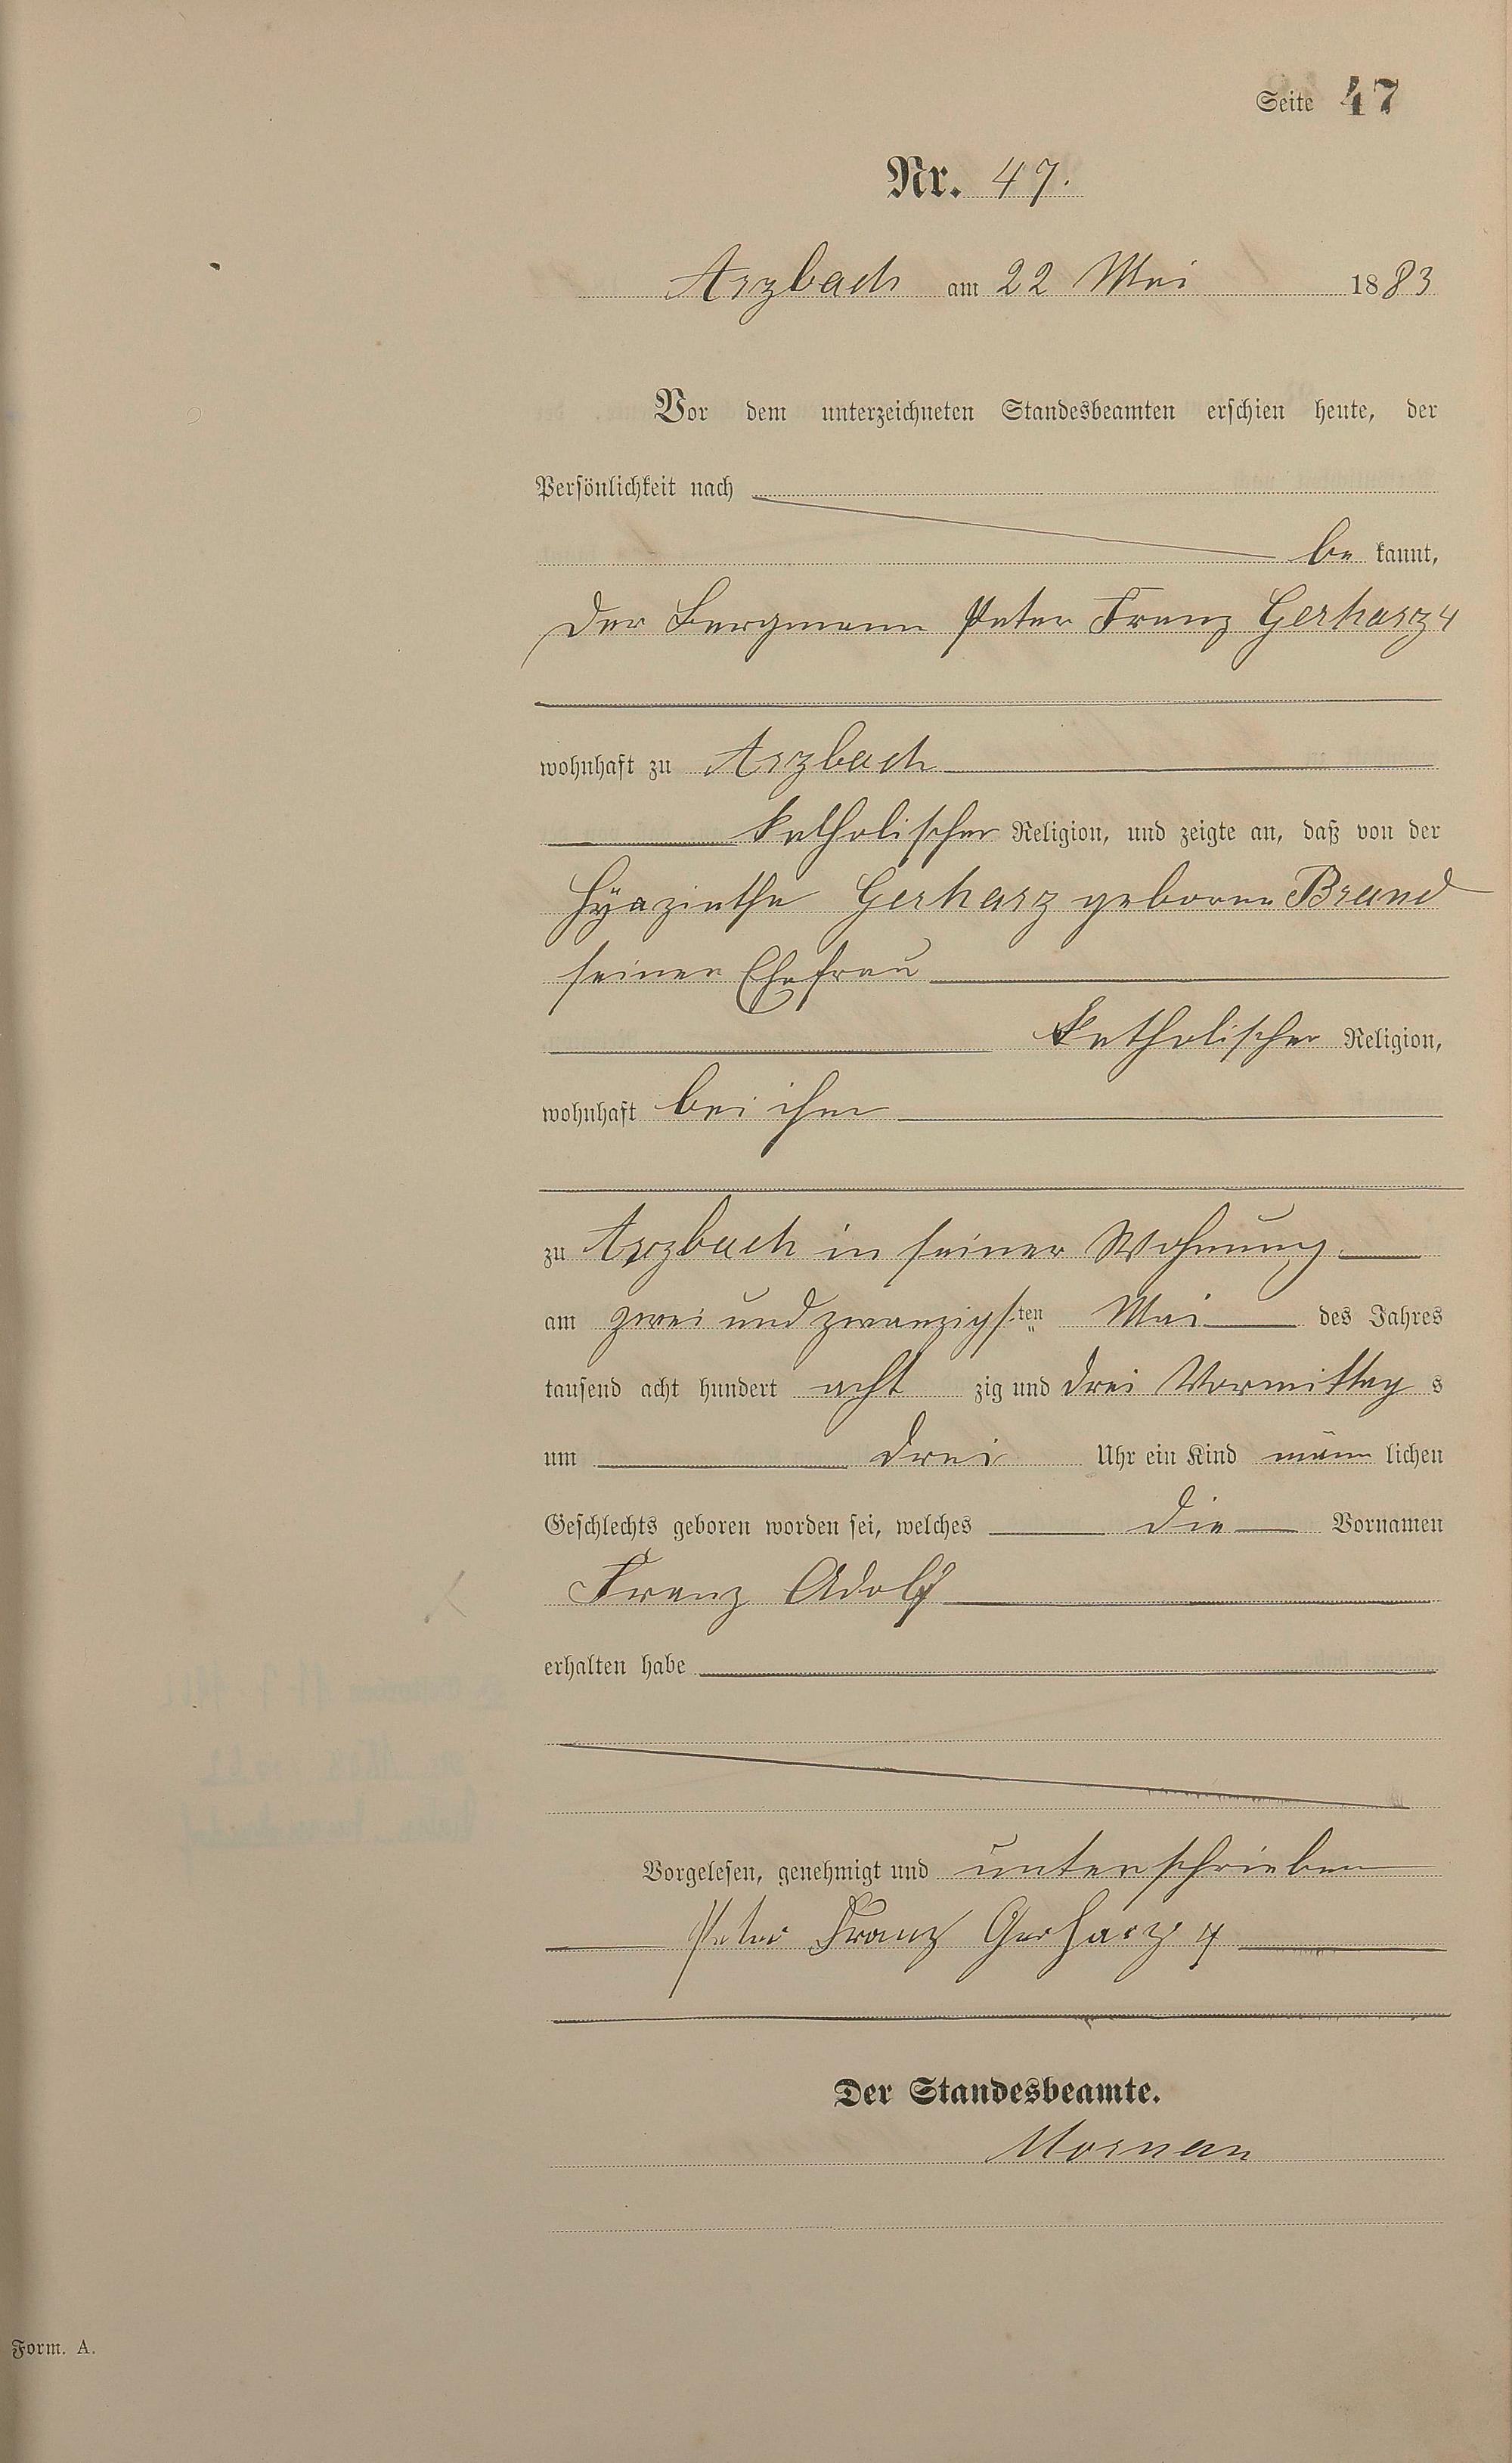 Seite 47
Nr. 47.
Arzbach am 22 Mai 1883
Vor dem unterzeichneten Standesbeamten erschien heute, der
Persönlichkeit nach
be kannt,
der Bergmann Peter Franz Gerharz 4
wohnhaft zu Arzbach
katholischer Religion, und zeigte an, daß von der
Hyazinthe Gerharz geborene Brand
seiner Ehefrau
katholischer Religion,
wohnhaft bei ihm
zu Arzbach in seiner Wohnung
am zwei und zwanzigsten Mai des Jahres
tausend acht hundert acht zig und drei Vormittag s
um drei Uhr ein Kind männ lichen
Geschlechts geboren worden sei, welches die Vornamen
Franz Adolf
erhalten habe
Vorgelesen, genehmigt und unterschrieben
Peter Franz Gerharz 4
Der Standesbeamte.
Form. A.